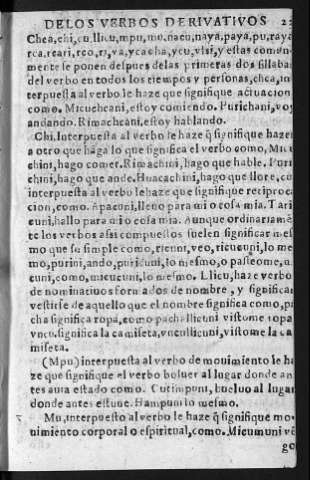 DE LOS VERBOS DERIVATIVOS
Chca, chi, cu, llicu, mpu, mu, nacu, naya, paya, pu, raya
rca, rcari, rco, ri, va, ycacha, ycu, ysi, y estas comun-
mente se ponen despues delas primeras dos sillabas
del verbo en todos los tiempos y personas, chca, in
terpuesta al verbo le haze que signifique actuacion
como. Micuchcani, estoy comiendo. Purichani, voy
andando. Rimachcani, estoy hablando.
Chi. Interpuesta al verbo le haze q̃ signifique hazer
a otro que haga lo que significa el verbo como, Micu
chini, hago comer. Rimachini, hago que hable. Puri
chini, hago que ande. Huacachini, hago que llore, cu
interpuesta al verbo le haze que signifique reciproca
cion, como. Apacuni, lleuo para mi o cosa mia. Tari
cuni, hallo para mi o cosa mia. Aunque ordinariamẽ
te los verbos assi compuestos suelen significar mes
mo que su simple como, ricuni, veo, ricucuni, lo mes
mo, purini, ando, puricuni, lo mesmo, o passeome,
cuni, como, micucuni, lo mesmo. Llicu, haze verbo
de nominatiuos formados de nombre, y significan
vestirse de aquello que el nombre significa como, pa
cha significa ropa, como pachallicuni vistome ropa
vncu. significa la camiseta, vncullicuni, vistome la ca
miseta.
(Mpu) interpuesta al verbo de mouimiento le ha
ze que signifique el verbo boluer al lugar donde an
tes auia estado como. Cutimpuni, bueluo al lugar
donde antes estuue. Hampuni lo mesmo.
Mu, interpuesto al verbo le haze q̃ signifique mo
uimiento corporal o espiritual, como. Micumuni vẽ
go